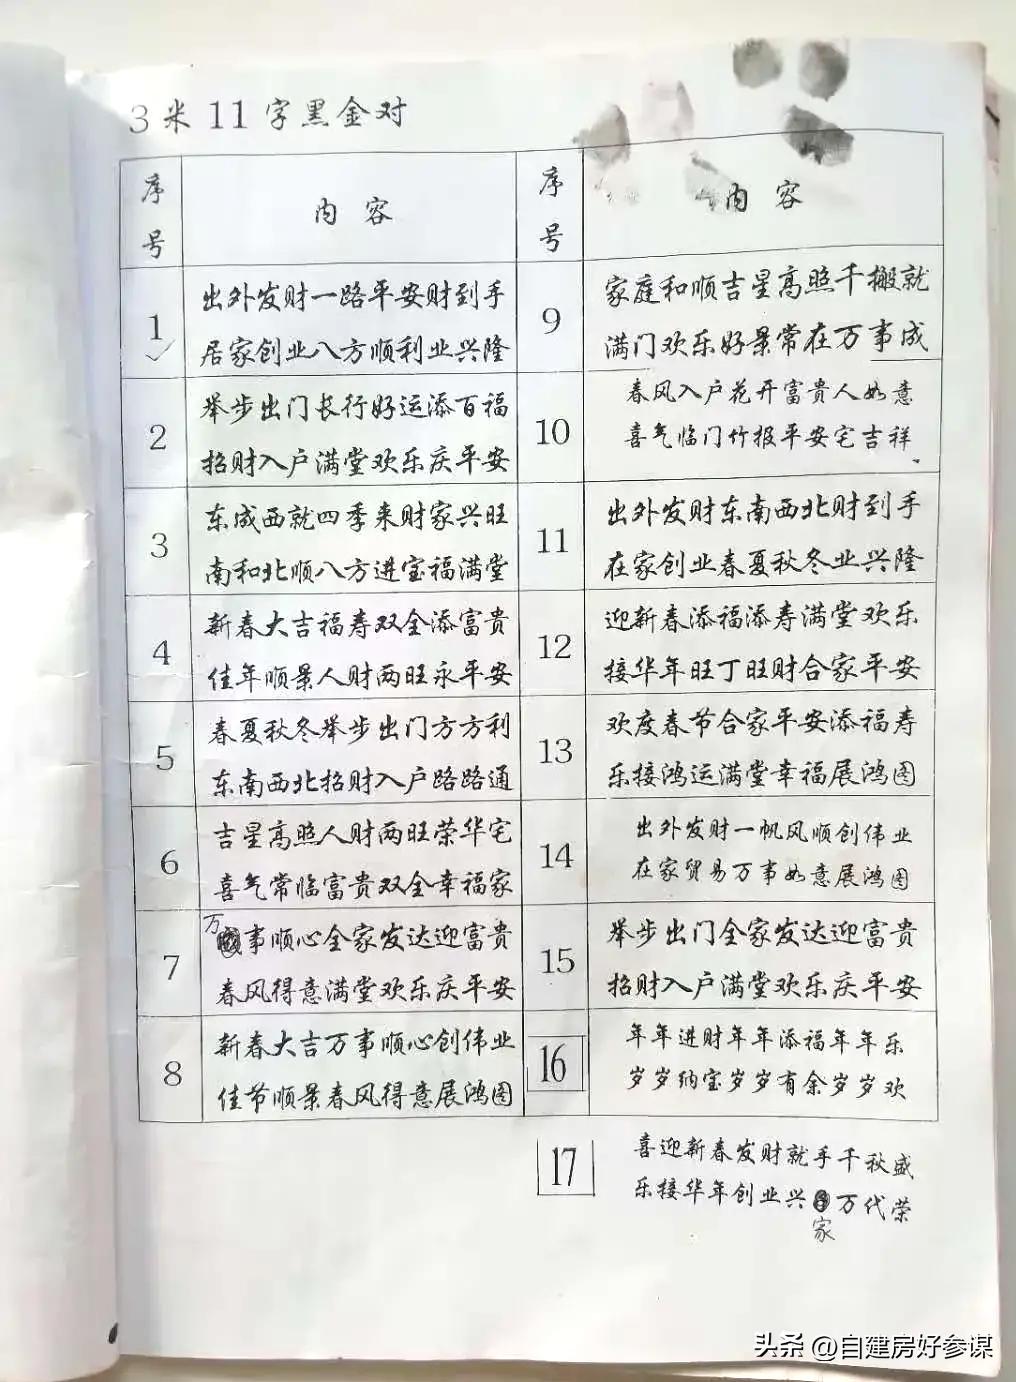 3米11字黑金对
序号 内容
1 出外发财一路平安财到手
居家创业八方顺利业兴隆
2 举步出门长行好运添百福
招财入户满堂欢乐庆平安
3 东成西就四季来财家兴旺
南和北顺八方进宝福满堂
4 新春大吉福寿双全添富贵
佳年顺景人财两旺永平安
5 春夏秋冬举步出门方方利
东南西北招财入户路路通
6 吉星高照人财两旺荣华宅
喜气常临富贵双全幸福家
7 万事顺心全家发达迎富贵
春风得意满堂欢乐庆平安
8 新春大吉万事顺心创伟业
佳节顺景春风得意展鸿图
序号 内容
9 家庭和顺吉星高照千搬就
满门欢乐好景常在万事成
10 春风入户花开富贵人如意
喜气临门竹报平安宅吉祥
11 出外发财东南西北财到手
在家创业春夏秋冬业兴隆
12 迎新春添福添寿满堂欢乐
接华年旺丁旺财合家平安
13 欢度春节合家平安添福寿
乐接鸿运满堂幸福展鸿图
14 出外发财一帆风顺创伟业
在家贸易万事如意展鸿图
15 举步出门全家发达迎富贵
招财入户满堂欢乐庆平安
16 年年进财年年添福年年乐
岁岁纳宝岁岁有余岁岁欢
17 喜迎新春发财就手千秋盛
乐接华年创业兴家万代荣
头条 @自建房好参谋